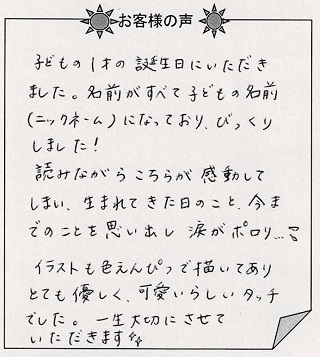 お客様の声
子どもの1才の誕生日にいただき
ました。名前がすべて子どもの名前
(ニックネーム)になっており、びっくり
しました!
読みながらこちらが感動して
しまい、生まれてきた日のこと、今ま
でのことを思い出し涙がポロリ…
イラストも色えんぴつで描いてあり
とても優しく、可愛いらしいタッチ
でした。一生大切にさせて
いただきます